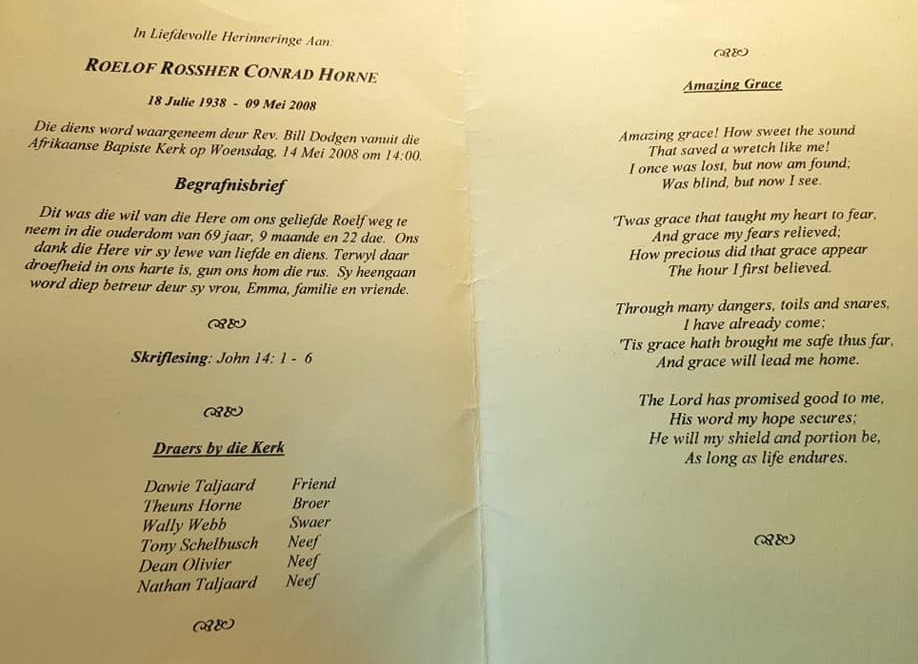 In Liefdevolle Herinneringe Aan:
ROELOF ROSSHER CONRAD HORNE
18 Julie 1938 - 09 Mei 2008
Die diens word waargeneem deur Rev. Bill Dodgen vanuit die
Afrikaanse Bapiste Kerk op Woensdag, 14 Mei 2008 om 14:00.
Begrafnisbrief
Dit was die wil van die Here om ons geliefde Roelf weg te
neem in die ouderdom van 69 jaar, 9 maande en 22 dae. Ons
dank die Here vir sy lewe van liefde en diens. Terwyl daar
droefheid in ons harte is, gun ons hom die rus. Sy heengaan
word diep betreur deur sy vrou, Emma, familie en vriende.
Skriflesing: John 14: 1 - 6
Draers by die Kerk
Dawie Taljaard Friend
Theuns Horne Broer
Wally Webb Swaer
Tony Schelbusch Neef
Dean Olivier Neef
Nathan Taljaard Neef
Amazing Grace
Amazing grace! How sweet the sound
That saved a wretch like me!
I once was lost, but now am found;
Was blind, but now I see.
'Twas grace that taught my heart to fear,
And grace my fears relieved;
How precious did that grace appear
The hour I first believed.
Through many dangers, toils and snares,
I have already come;
'Tis grace hath brought me safe thus far,
And grace will lead me home.
The Lord has promised good to me,
His word my hope secures;
He will my shield and portion be,
As long as life endures.